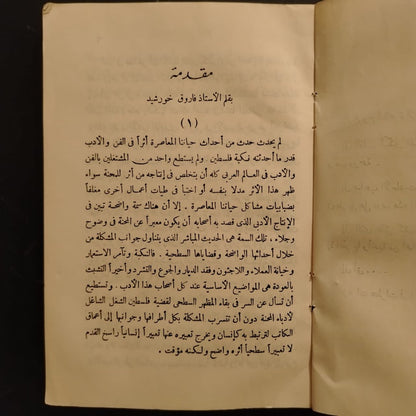 مقدمة
بقلم الأستاذ فاروق خورشيد
(١)
لم يحدث حدث من أحداث حياتنا المعاصرة أثراً فى الفن والأدب
قدر ما أحدثته نكبة فلسطين ولم يستطع واحد من المشتغلين بالفن
والأدب فى العالم العربى كله أن يتخلص فى إنتاجه من أثر للمحنة سواء
ظهر هذا الأثر مدلا بنفسه أو اختبأ فى طيات أعمال أخرى مغلفاً
بضبابيات مشاكل حياتنا المعاصرة . إلا أن هناك سمة واضحة تبين فى
الإنتاج الأدبى الذى قصد به أصحابه أن يكون معبراً عن المحنة فى وضوح
وجلاء . تلك السمة هى الحديث المباشر الذى يتناول جوانب المشكلة من
خلال أحداثها الواضحة وقضاياها السطحية . فالنكبة وتآمر الاستعمار
وخيانة العملاء واللاجئون وفقد الديار والجوع والتشرد وأخيراً التشبث
بالعودة هى المواضيع الأساسية عند كل أصحاب هذا الأدب . ونستطيع
أن نسأل عن السر فى بقاء المظهر السطحى لقضية فلسطين الشغل الشاغل
لأدباء المحنة دون أن تتسرب المشكلة بكل أطرافها وجوانبها إلى أعماق
الكاتب لترتبط به كإنسان ويخرج تعبيره عنها تعبيراً إنسانياً راسخ القدم
لا تعبيراً سطحياً أثره واضح ولكنه مؤقت .